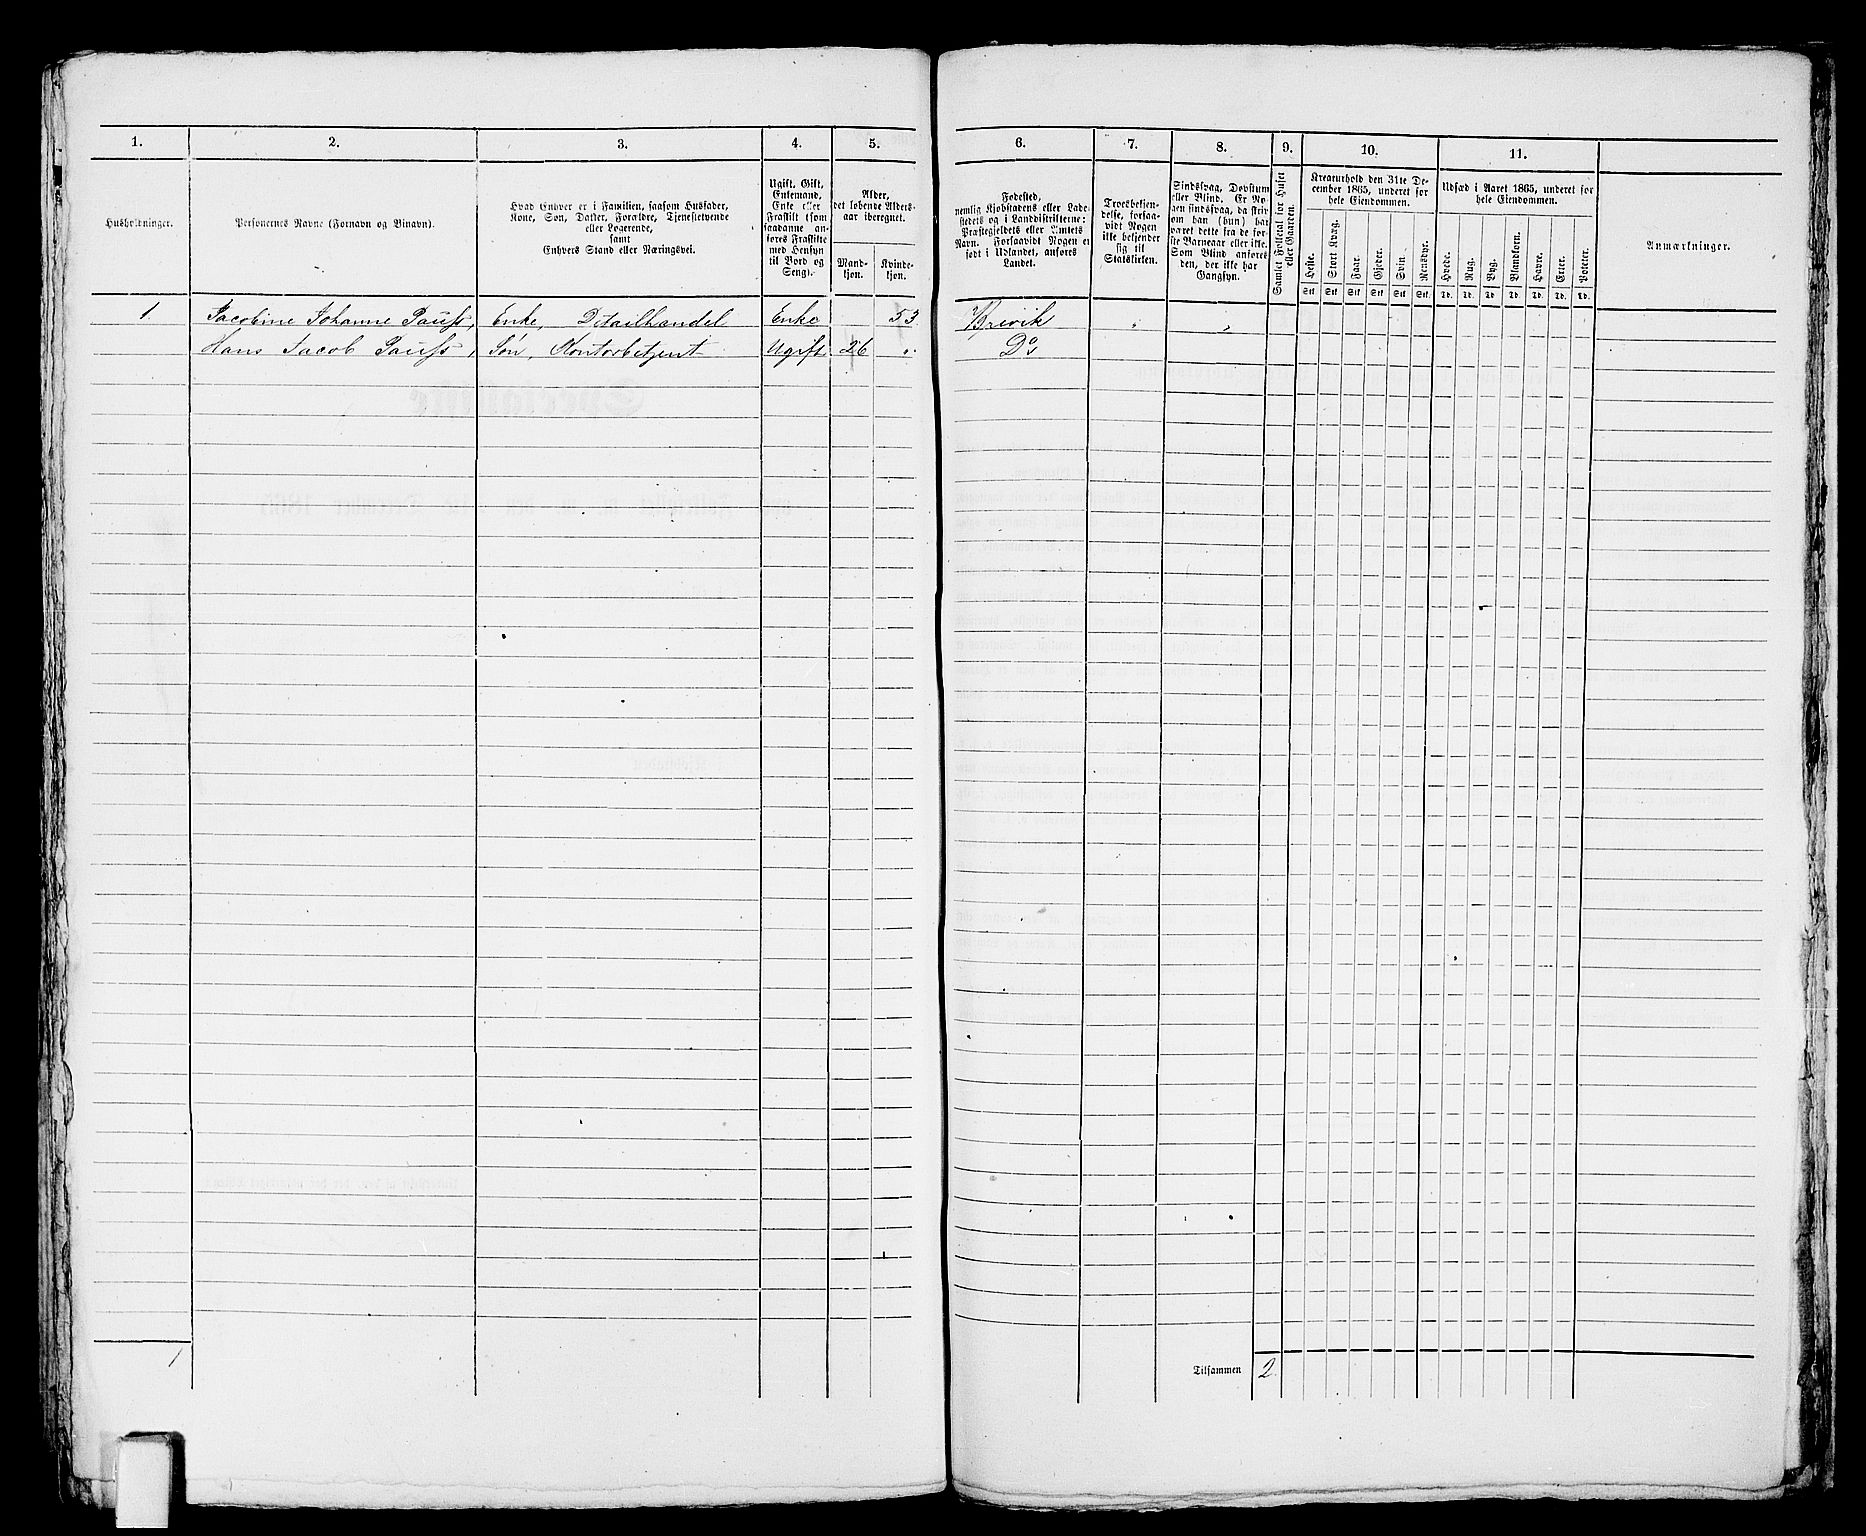 1.
2.
3.
4.
5.
6.
7.
8.
9.
10.
11.
Husholdninger.
Personernes Navne (Fornavn og Binavn).
Hvad Enhver er i Familien, saasom Husfader,
Kone, Søn, Datter, Forældre, Tjenestetyende
eller Logerende,
samt
Enhvers Stand eller Næringsvei.
Ugift, Gift,
Enkemand,
Enke eller
Fraskilt (som
saadanne an-
føres Fraskilte
med Hensyn
til Bord og
Seng).
Alder,
det løbende Alders-
aar iberegnet.
Mand-
kjøn.
Kvinde-
kjøn.
Fødested,
nemlig Kjøbstadens eller Lade-
stedets og i Landdistrikterne:
Præstegjeldets eller Amtets
Navn. Forsaavidt Nogen er
født i Udlandet, anføres
Landet.
Troesbekjen-
delse, forsaa-
vidt Nogen
ikke bekjender
sig til
Statskirken.
Sindssvag, Døvstum
eller Blind. Er No-
gen sindssvag, da skriv
om han (hun) har
været dette fra de før-
ste Barneaar eller ikke.
Som Blind anføres
den, der ikke har
Gangsyn.
Samlet Folketal for Huset
eller Gaarden.
Kreaturhold den 31te De-
cember 1865, underet for
hele Eiendommen.
Heste.
Stort Kvæg.
Faar.
Gjeder.
Svin.
Rensdyr.
Stk Stk Stk Stk Stk Stk.
Udsæd i Aaret 1865, underet for
hele Eiendommen.
Hvede.
Rug.
Byg.
Blandkorn.
Havre.
Erter.
Poteter.
Td. Td. Td Td. Td. Td. Td.
Anmærkninger.
1. Jacobine Johanne Pauss, Enke, Detailhandel Enke 53 Brevik " "
Hans Jacob Pauss, Søn, Kontorbetjent Ugift 26 " Do
1
Tilsammen 2.